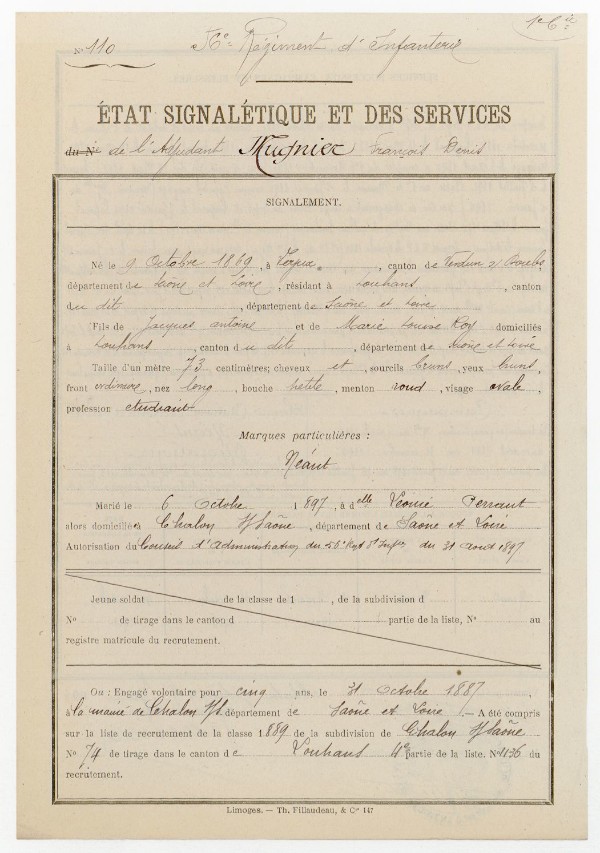 N° 110
56e Régiment d'Infanterie
ÉTAT SIGNALÉTIQUE ET DES SERVICES
du N° de l'Adjudant Mugnier François Denis
SIGNALEMENT.
Né le 9 Octobre 1869, à Torpes, canton de Verdun s/ Doubs,
département de Saône et Loire, résidant à Louhans, canton
du dit, département de Saône et Loire
Fils de Jacques Antoine et de Marie Louise Roy domiciliés
à Louhans, canton du dit, département de Saône et Loire
Taille d'un mètre 73 centimètres; cheveux et, sourcils bruns, yeux bruns,
front ordinaire, nez long, bouche petite, menton rond, visage ovale,
profession étudiant
Marques particulières :
Néant
Marié le 6 Octobre 1897, à dlle Léonie Perraut
alors domiciliée à Chalon s/Saône, département de Saône et Loire
Autorisation du Conseil d'Administration du 56e Régt d'Infrie du 31 août 1897
Jeune soldat de la classe de 1 , de la subdivision d
N° de tirage dans le canton d partie de la liste, N° au
registre matricule du recrutement.
Ou : Engagé volontaire pour cinq ans, le 31 Octobre 1887,
à la mairie de Chalon s/S département de Saône et Loire. — A été compris
sur la liste de recrutement de la classe 1889 de la subdivision de Chalon s/Saône
N° 74 de tirage dans le canton de Louhans 4e partie de la liste. N° 1136 du
recrutement.
Limoges. — Th. Fillaudeau, & Cie 147